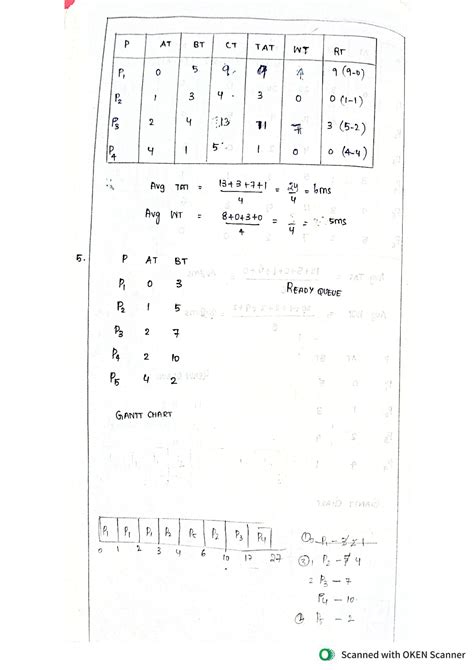 P AT BT CT TAT WT RT
P1 0 5 9 9 9 (9-0)
P2 1 3 4 3 0 0 (1-1)
P3 2 4 13 11 7 3 (5-2)
P4 4 1 5 1 0 0 (4-4)
Avg TAT = 13+3+7+1 / 4 = 24 / 4 = 6ms
Avg WT = 8+0+3+0 / 4 = / 4 = 5ms
5. P AT BT
P1 0 3 READY QUEUE
P2 1 5
P3 2 7
P4 2 10
P5 4 2
GANTT CHART
P1 P1 P1 P2 P5 P2 P3 P4
0 1 2 3 4 6 10 17 27
P1 - 3 2 1
P2 - 4
P3 - 7
P4 - 10
- 2
Scanned with OKEN Scanner